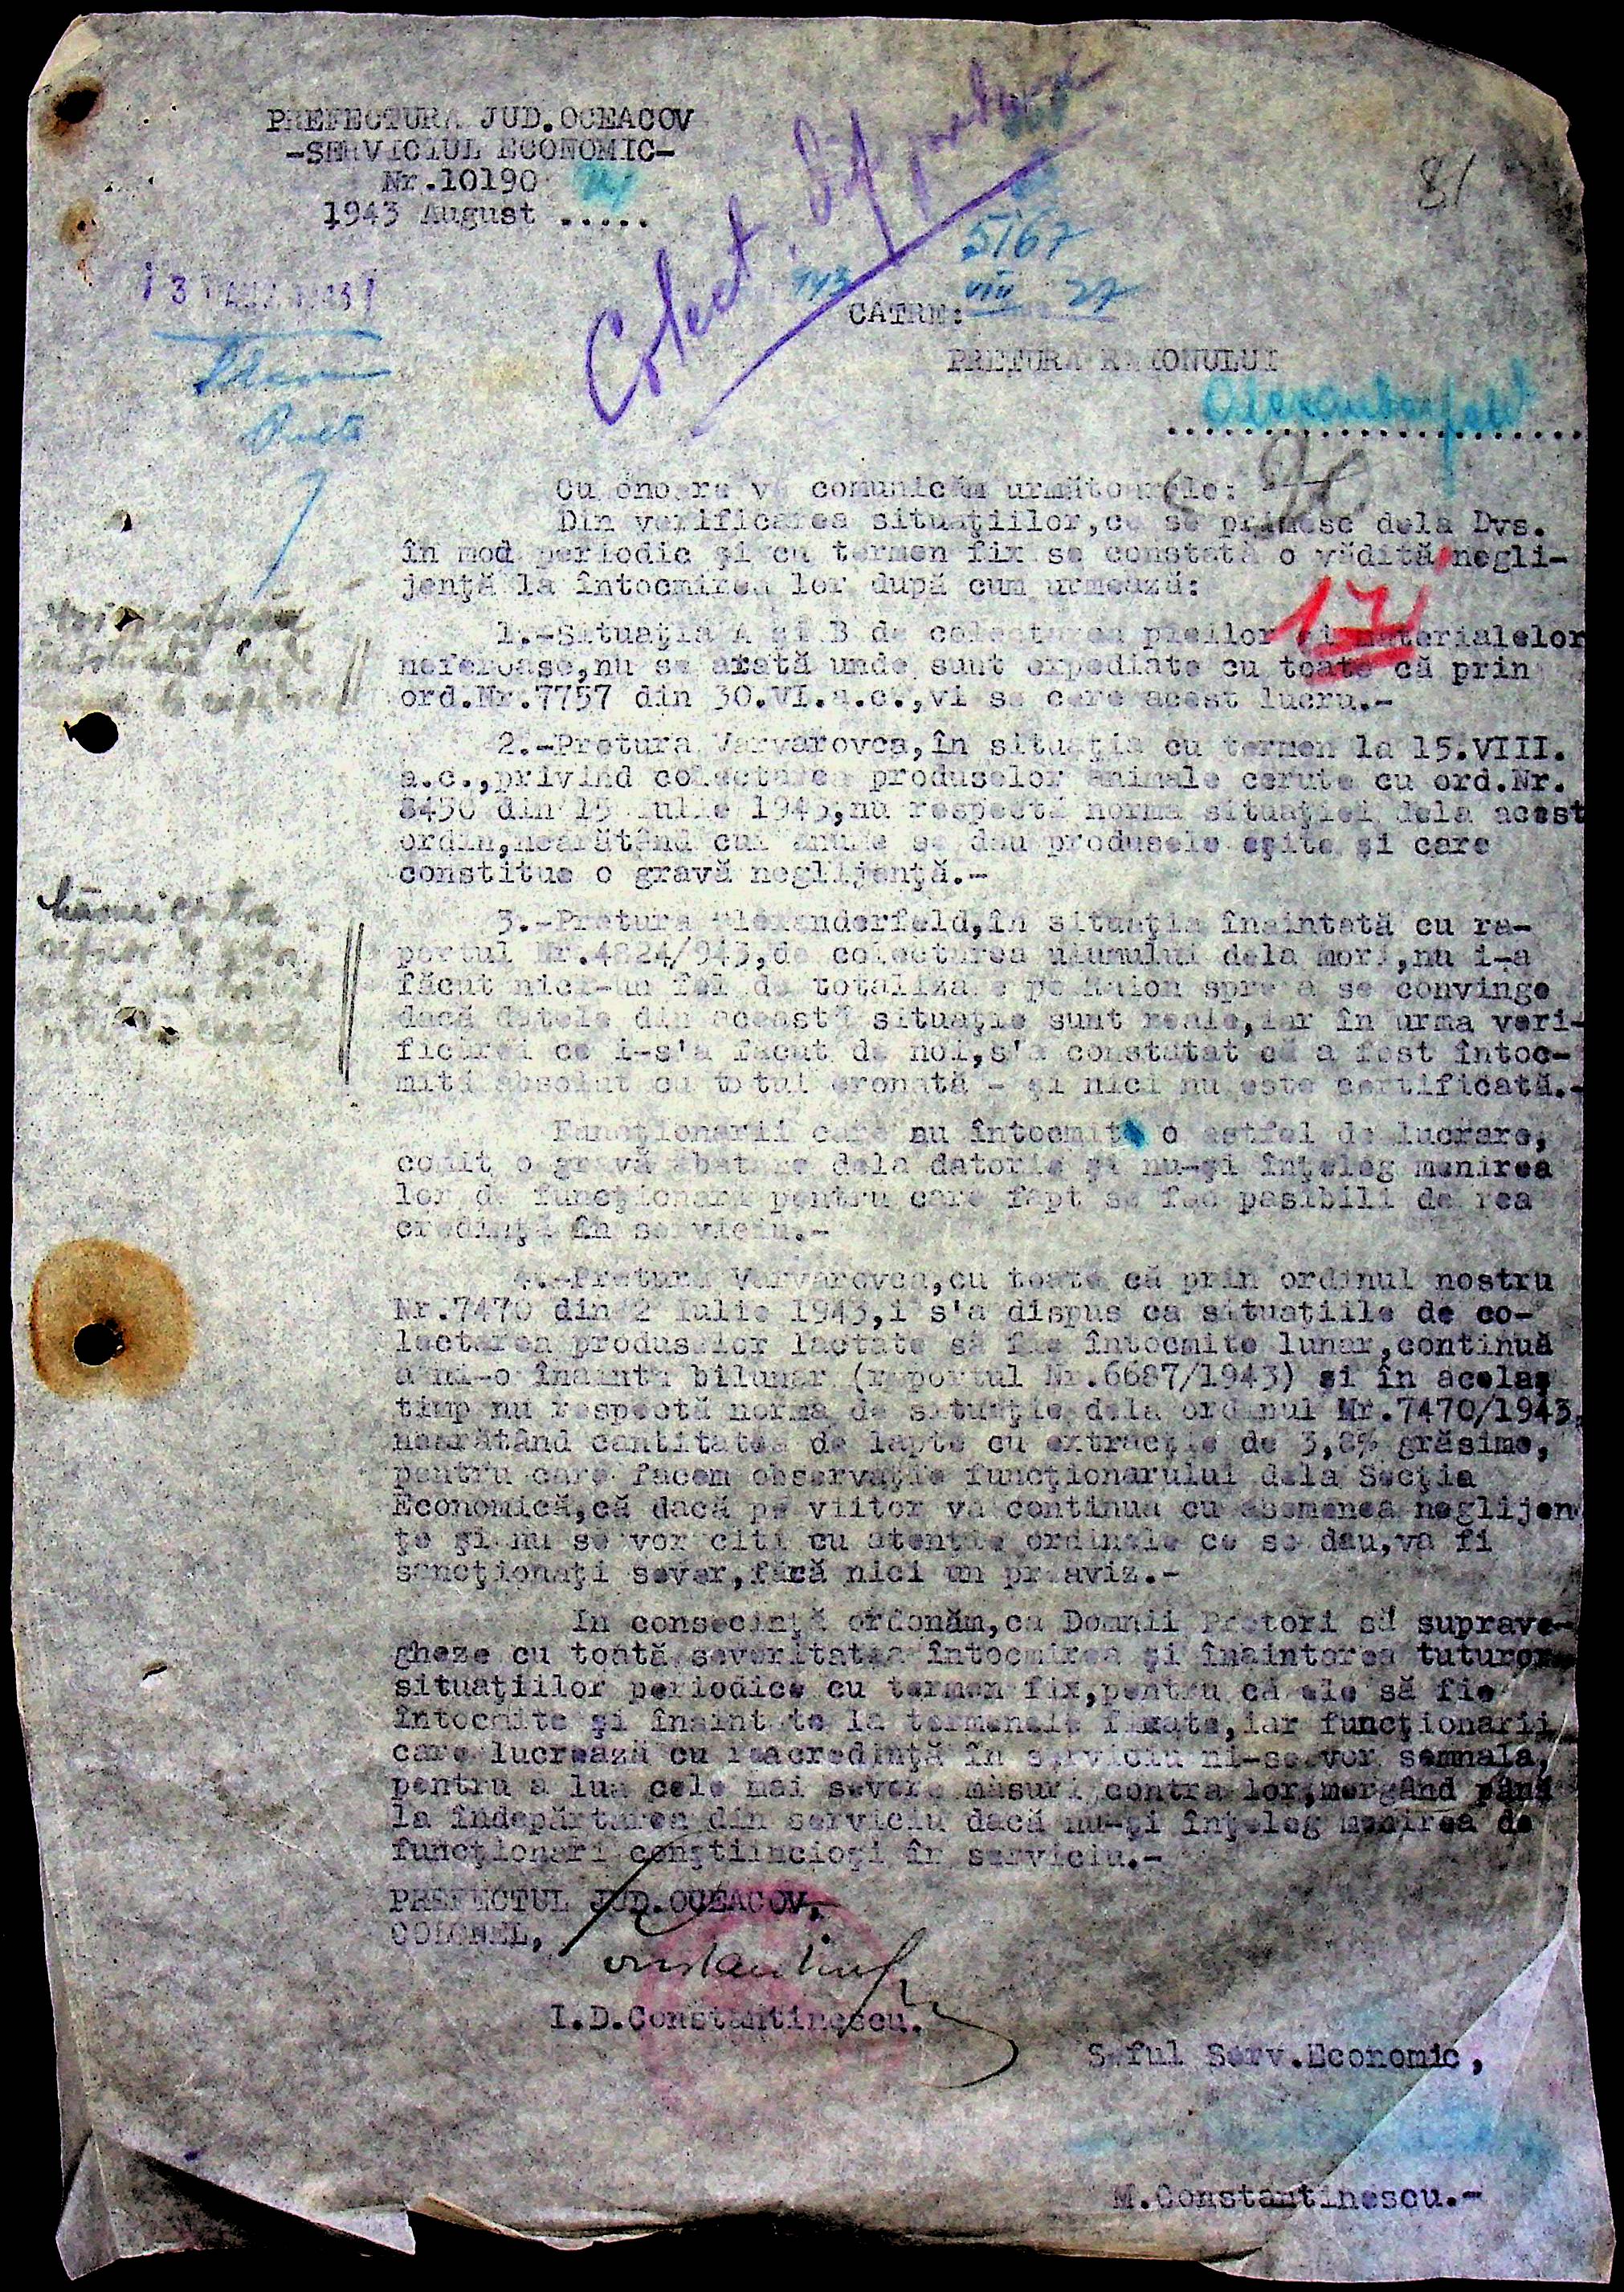 PREFECTURA JUD.OCEACOV
-SERVICIUL ECONOMIC-
Nr.10190
1943 August .....
81
Colect.
5167
943 VIII 27
CATRE:
PRETURA RAIONULUI
Alexanderfeld
Cu onoare vă comunicăm următoarele:
Din verificarea situaţiilor,ce se primesc dela Dvs.
în mod periodic şi cu termen fix se constată o vădită negli-
jenţă la întocmirea lor după cum urmează:
171
1.-Situaţia A şi B de colectarea pieilor şi materialelor
neferoase,nu se arată unde sunt expediate cu toate că prin
ord.Nr.7757 din 30.VI.a.c.,vi se cere acest lucru.-
2.-Pretura Varvarovca,în situaţia cu termen la 15.VIII.
a.c.,privind colectarea produselor animale cerute cu ord.Nr.
8450 din 15 Iulie 1943,nu respectă norma situaţiei dela acest
ordin,nearătând cui anume se dau produsele eşite şi care
constitue o gravă neglijenţă.-
3.-Pretura Alexanderfeld,în situaţia înaintată cu ra-
portul Nr.4824/943,de colectarea uiumului dela mori,nu i-a
făcut nici-un fel de totalizare pe Raion spre a se convinge
dacă datele din această situaţie sunt reale,iar în urma veri-
ficărei ce i-s'a făcut de noi,s'a constatat că a fost întoc-
mită absolut cu totul eronată - şi nici nu este certificată.-
Funcţionarii care au întocmit o astfel de lucrare,
comit o gravă abatere dela datorie şi nu-şi înţeleg menirea
lor de funcţionari pentru care fapt se fac pasibili de rea
credinţă în serviciu.-
4.-Pretura Varvarovca,cu toate că prin ordinul nostru
Nr.7470 din 2 Iulie 1943,i s'a dispus ca situaţiile de co-
lectarea produselor lactate să fie întocmite lunar,continuă
a ni-o înainta bilunar (raportul Nr.6687/1943) şi în acelaş
timp nu respectă norma de situaţie dela ordinul Nr.7470/1943,
nearătând cantitatea de lapte cu extracţie de 3,8% grăsime,
pentru care facem observaţie funcţionarului dela Secţia
Economică,că dacă pe viitor va continua cu asemenea neglijen
ţe şi nu se vor citi cu atenţie ordinele ce se dau,va fi
sancţionaţi sever,fără nici un preaviz.-
In consecinţă ordonăm,ca Domnii Pretori să suprave-
gheze cu toată severitatea întocmirea şi înaintarea tuturor
situaţiilor periodice cu termen fix,pentru că ele să fie
întocmite şi înaintate la termenele fixate,iar funcţionarii
care lucrează cu reacredinţă în serviciu ni-se vor semnala,
pentru a lua cele mai severe măsuri contra lor,mergând până
la îndepărtarea din serviciu dacă nu-şi înţeleg menirea de
funcţionari conştiincioşi în serviciu.-
PREFECTUL JUD.OCEACOV,
COLONEL,
I.D.Constantinescu.
Seful Serv.Economic,
M.Constantinescu.-